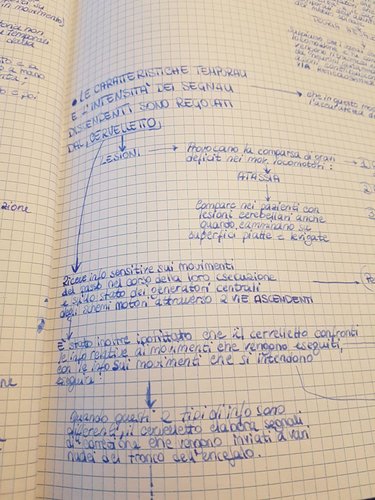 • LE CARATTERISTICHE TEMPORALI
E L'INTENSITÀ DEI SEGNALI
DISCENDENTI SONO REGOLATI
DAL CERVELLETTO
LESIONI
Provocano la comparsa di gravi
deficit nei mov. locomotori:
ATASSIA
Compare nei pazienti con
lesioni cerebellari anche
quando camminano su
superfici piatte e levigate
Riceve info sensitive sui movimenti
del passo nel corso della loro esecuzione
e sullo stato dei generatori centrali
degli schemi motori attraverso 2 VIE ASCENDENTI
È stato inoltre ipotizzato che il cervelletto confronti
le info relative ai movimenti che vengono eseguiti,
con le info sui movimenti che si intendono
eseguire!
Quando questi 2 tipi di info sono
differenti, il cervelletto elabora segnali
di correzione che vengono inviati a vari
nuclei del tronco dell'encefalo.